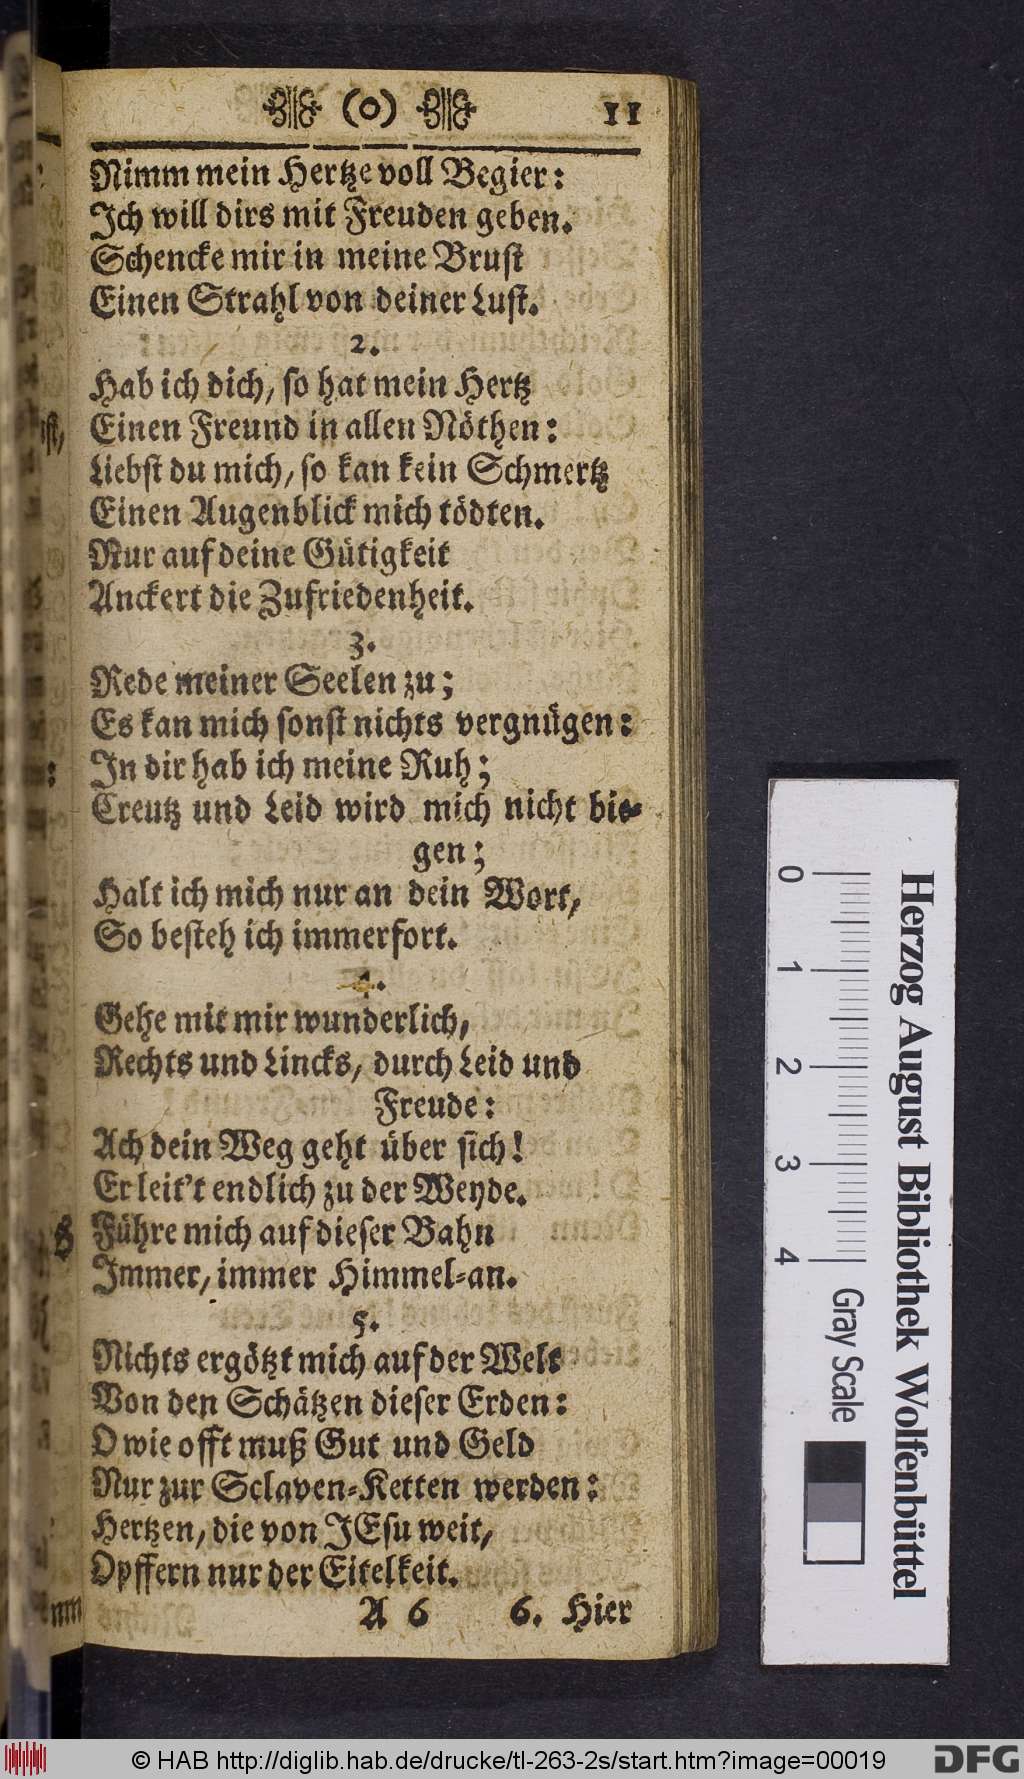 (o) 11
Nimm mein Hertze voll Begier:
Ich will dirs mit Freuden geben.
Schencke mir in meine Brust
Einen Strahl von deiner Lust.
2.
Hab ich dich, so hat mein Hertz
Einen Freund in allen Nöthen:
Liebst du mich, so kan kein Schmertz
Einen Augenblick mich tödten.
Nur auf deine Gütigkeit
Anckert die Zufriedenheit.
3.
Rede meiner Seelen zu;
Es kan mich sonst nichts vergnügen:
In dir hab ich meine Ruh;
Creutz und Leid wird mich nicht bie-
gen;
Halt ich mich nur an dein Wort,
So besteh ich immerfort.
4.
Gehe mit mir wunderlich,
Rechts und Lincks, durch Leid und
Freude:
Ach dein Weg geht über sich!
Er leit't endlich zu der Weyde.
Führe mich auf dieser Bahn
Immer, immer Himmel-an.
5.
Nichts ergötzt mich auf der Welt
Von den Schätzen dieser Erden:
O wie offt muß Gut und Geld
Nur zur Sclaven-Ketten werden:
Hertzen, die von JEsu weit,
Opffern nur der Eitelkeit.
A 6 6. Hier
0 1 2 3 4 Gray Scale
Herzog August Bibliothek Wolfenbüttel
© HAB http://diglib.hab.de/drucke/tl-263-2s/start.htm?image=00019 DFG